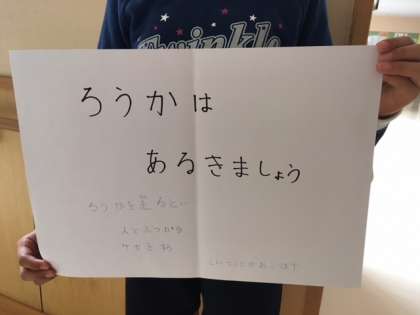 Twinkle
ろうかは
あるきましょう
ろうかを走ると
人とぶつかる
ケガをする